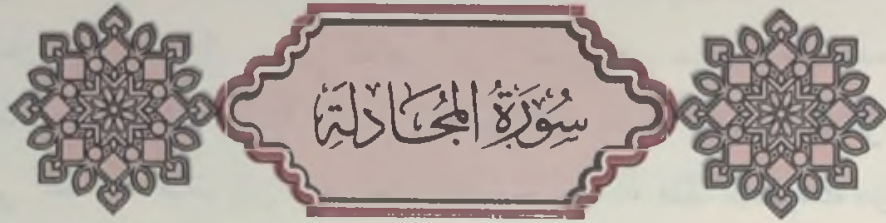 سُورَةُ المُجَادلَةِ